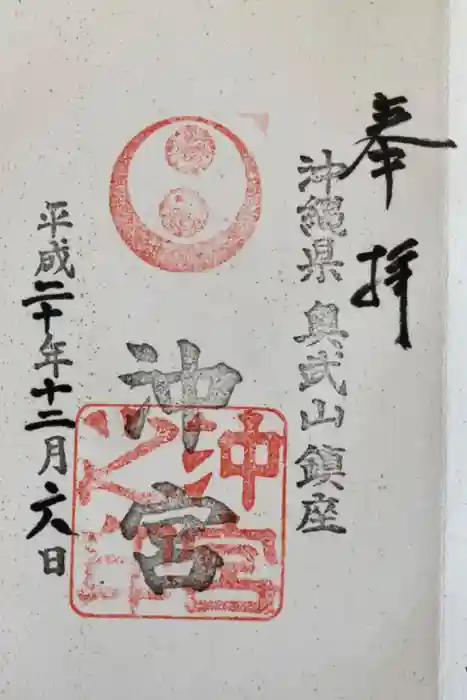 奉拝
沖縄県 奥武山 鎮座
沖宮
沖宮之印
平成二十年十二月六日